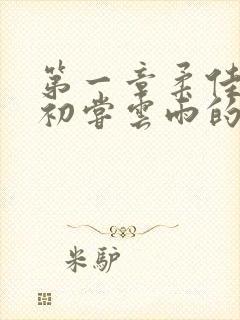 第一章柔佳
初尝雲雨的
米驴